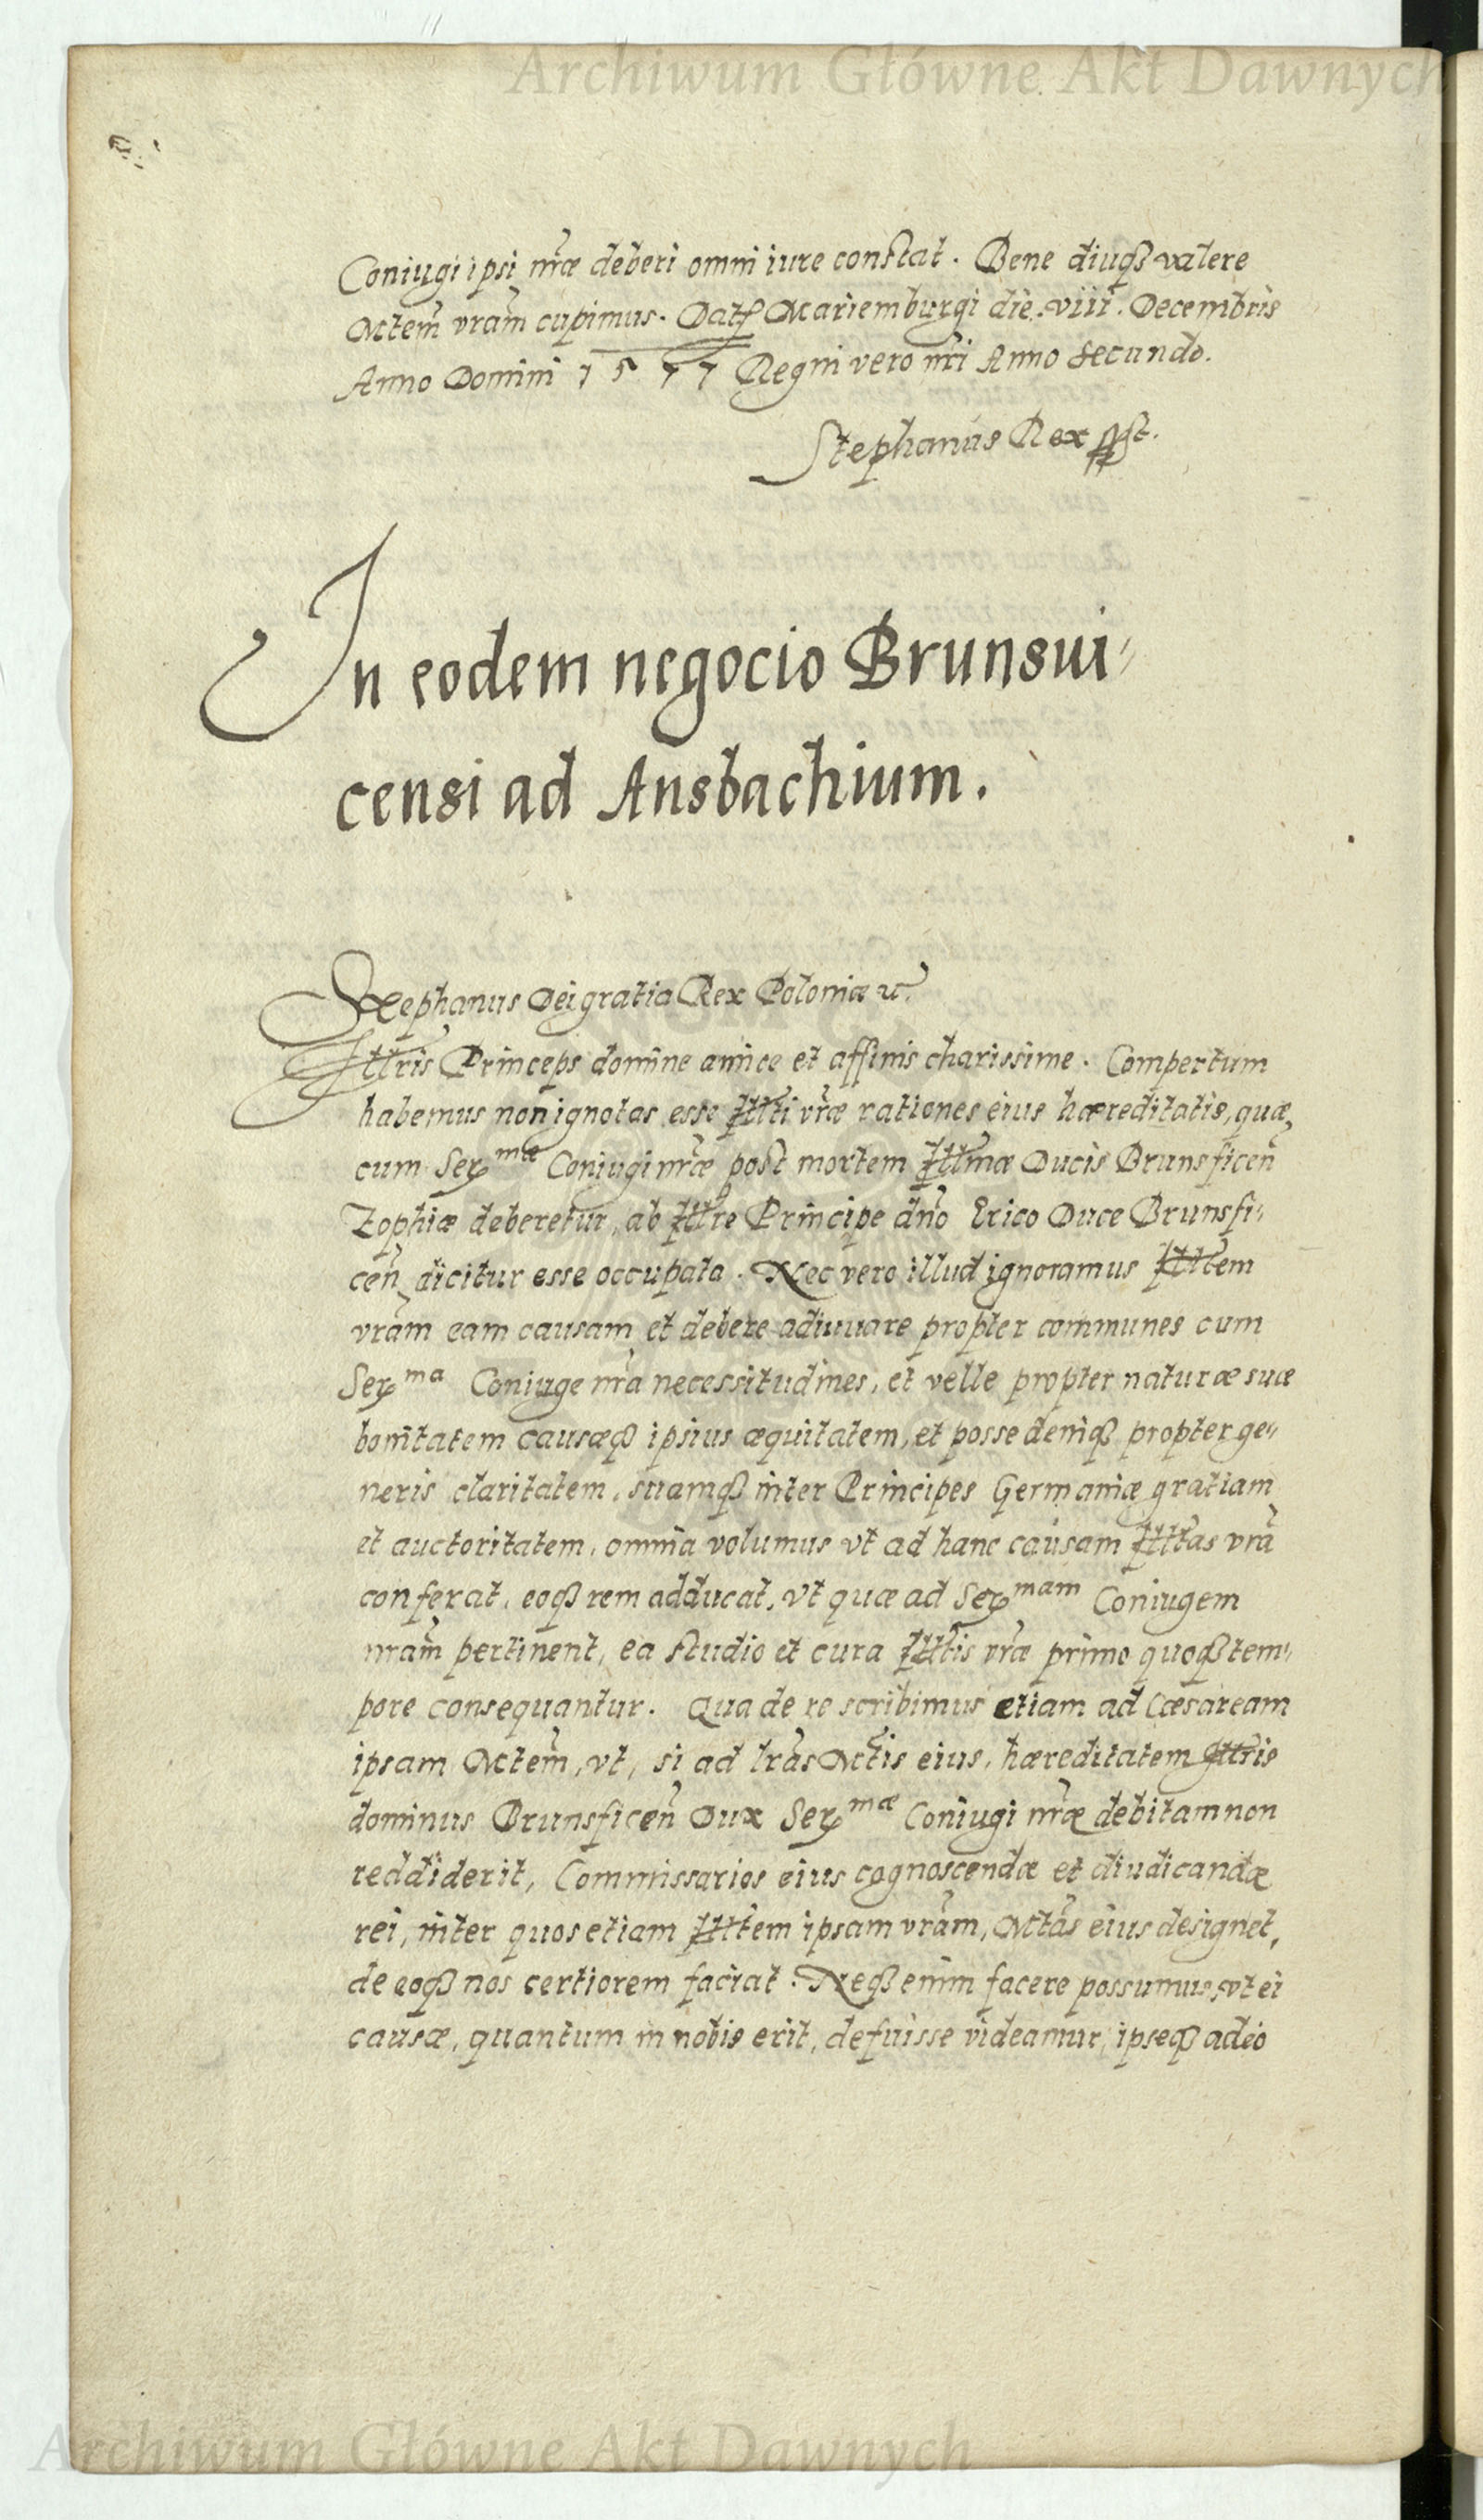 Archiwum Główne Akt Dawnych
Coniugi ipsi nr̃æ deberi omni iure constat. Bene diuqȝ valere
Mtem̃ vram̃ cupimus. Dat Mariemburgi die viii. Decembris
Anno Domini 1577 Regni vero nr̃i Anno Secundo.
Stephanus Rex sst.
In eodem negocio Brunsui-
censi ad Ansbachium.
Stephanus Dei gratia Rex Poloniæ &c.
Illris Princeps domine amice et affinis charissime. Compertum
habemus non ignotas esse Illti vr̃æ rationes eius hæreditatis, quæ
cum Serᵐᵃᵉ Coniugi nr̃æ post mortem Illmæ Ducis Brunsficen̄
Zophiæ deberetur, ab Illre Principe dn̄o Erico Duce Brunsfi-
cen̄ dicitur esse occupata. Nec vero illud ignoramus Illtem
vram̃ eam causam et debere adiuuare propter communes cum
Serᵐᵃ Coniuge nr̃a necessitudines, et velle propter naturæ suæ
bonitatem causæqȝ ipsius æquitatem, et posse deniqȝ propter ge-
neris claritatem, suamqȝ inter Principes Germaniæ gratiam
et auctoritatem, omnia volumus vt ad hanc causam Illtas vrã
conferat, eoqȝ rem adducat, vt quæ ad Serᵐᵃᵐ Coniugem
nram̃ pertinent, ea studio et cura Illtis vr̃æ primo quoqȝ tem-
pore consequantur. Qua de re scribimus etiam ad Cæsaream
ipsam Mtem̃, vt, si ad lrãs Mt̃is eius, hæreditatem Illris
dominus Brunsficen̄ Dux Serᵐᵃᵉ Coniugi nr̃æ debitam non
reddiderit, Commissarios eius cognoscendæ et diudicandæ
rei, inter quos etiam Illtem ipsam vram̃, Mtãs eius designet,
de eoqȝ nos certiorem faciat. Neqȝ enim facere possumus, vt ei
causæ, quantum in nobis erit, defuisse videamur, ipseqȝ adeo
Archiwum Główne Akt Dawnych